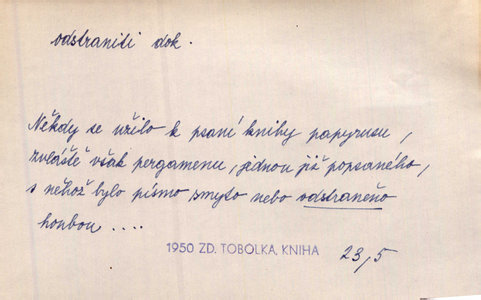 odstraniti dok.
Někdy se užilo k psaní knihy papyrusu,
zvláště však pergamenu, jednou již popsaného,
s něhož bylo písmo smyto nebo odstraněno
houbou ....
1950 ZD. TOBOLKA, KNIHA 23,5